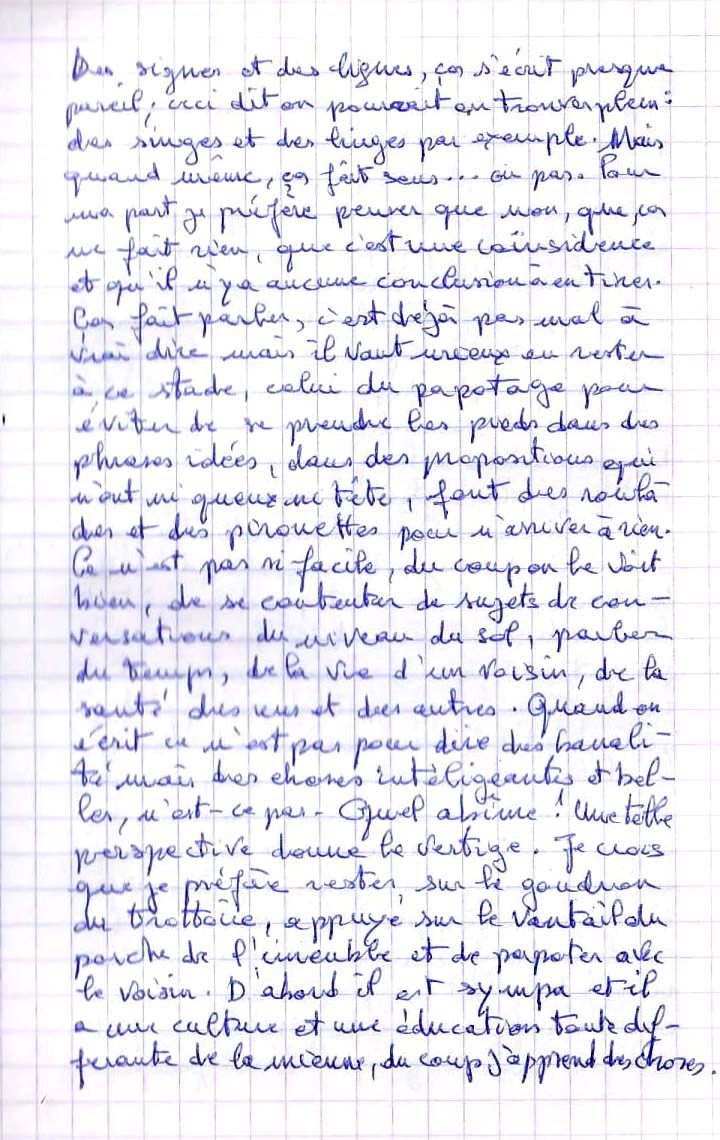 Des signes et des lignes, ça s'écrit presque
pareil, ceci dit on pourrait en trouver plein :
des singes et des linges par exemple. Mais
quand même, ça fait sens... ou pas. Pour
ma part je préfère penser que non, que ça
ne fait rien, que c'est une coïnsidence
et qu'il n'y a aucune conclusion à en tirer.
Ça fait parler, c'est déjà pas mal à
vrai dire mais il vaut mieux en rester
à ce stade, celui du papotage pour
éviter de se prendre les pieds dans des
phrases idées, dans des propositions qui
n'ont ni queue ni tête, font des roula
des et des pirouettes pour n'arriver à rien.
Ce n'est pas si facile, du coup on le voit
bien, de se contenter de sujets de con-
versations du niveau du sol, parler
du temps, de la vie d'un voisin, de la
santé des uns et des autres. Quand on
écrit ce n'est pas pour dire des banali-
té mais des choses intéligeantes et bel-
les, n'est-ce pas. Quel abîme ! Une telle
perspective donne le vertige. Je crois
que je préfère rester sur le goudron
du trottoir, appuyé sur le vantail du
porche de l'immeuble et de papoter avec
le voisin. D'abord il est sympa et il
a une culture et une éducation toute dif-
férante de la mienne, du coup j'apprend des choses.